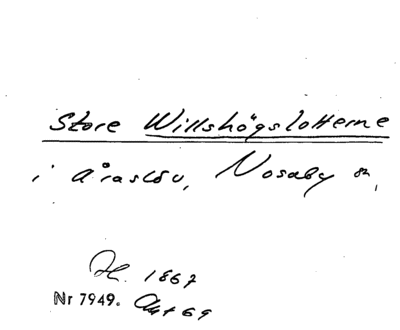 Store Willshögslotterne
i Åraslöv, Nosaby sn,
H. 1867
Nr 7949. Akt 69